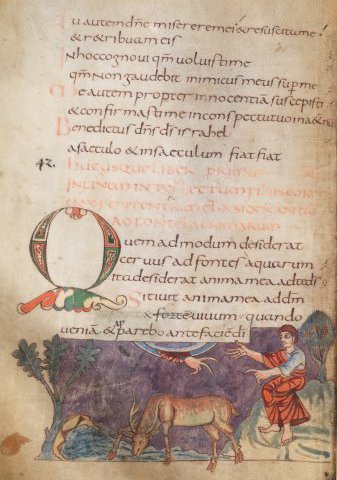 Tu autem dn̄e miserere mei & resuscita me
& r&ribuam eis
In hoc cognovi qm̄ voluisti me
qm̄ non gaudebit inimicus meus sup me
Me autem propter innocentia suscepisti
& confirmasti me in conspectu tuo in a&
Benedictus dn̄s ds̄ israhel
a saeculo & in saeculum fiat fiat
42
huc usque liber primus
Quem admodum desiderat
cervus ad fontes aquarum
ita desiderat anima mea ad te ds̄
Sitivit anima mea ad dm̄
& forte vivum quando
venia & parebo ante facie di